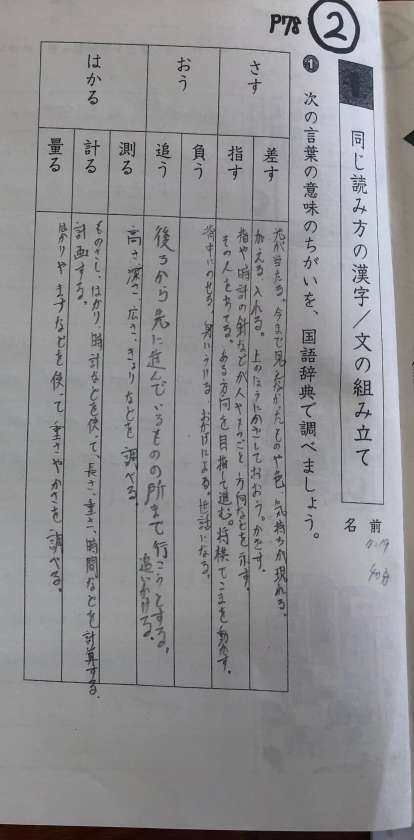 P78
②
1
同じ読み方の漢字/文の組み立て
名前
❶ 次の言葉の意味のちがいを、国語辞典で調べましょう。
さす
差す
光が当たる。今まで見えなかったものや色、気持ちが現れる。
加える。入れる。上のほうにかざしておおう。かざす。
指す
指や時計の針などが人やものごと、方向などを示す。
その人をあてる。ある方向を目指て進む。将棋でこまを動かす。
おう
負う
背中にのせる。身にうける。おかげによる。世話になる。
追う
後ろから先に進んでいるものの所まで行こうとする。
追いかける。
はかる
測る
高さ、深さ、広さ、きょりなどを調べる。
計る
ものさし、はかり、時計などを使って、長さ、重さ、時間などを計算する。
計画する。
量る
はかりやますなどを使って、重さやかさを調べる。